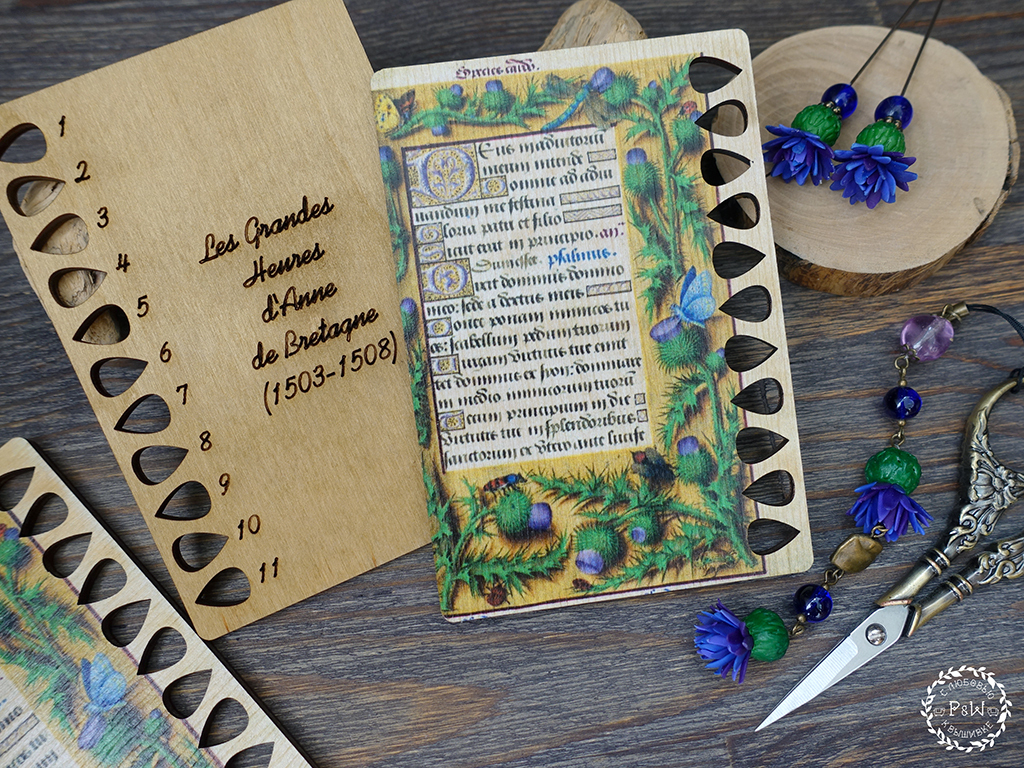 1
2
3
4
5
6
7
8
9
10
11
Les Grandes
Heures
d'Anne
de Bretagne
(1503-1508)
Deus in adiutoriū
meum intende
Domine ad adiu
uandum me festina
Gloria patri et filio
Sicut erat in principio. an̄.
psalmus.
Dixit dominus domino
meo: sede a dextris meis
Donec ponam inimicos tu
os: scabellum pedum tuorum
Virgam virtutis tue emit
tet dominus ex syon: dominare
in medio inimicorum tuorū
Tecum principium in die
virtutis tue in splendoribus
sanctorum ex vtero ante lucife
С ЛЮБОВЬЮ
P&W
К ВЫШИВКЕ